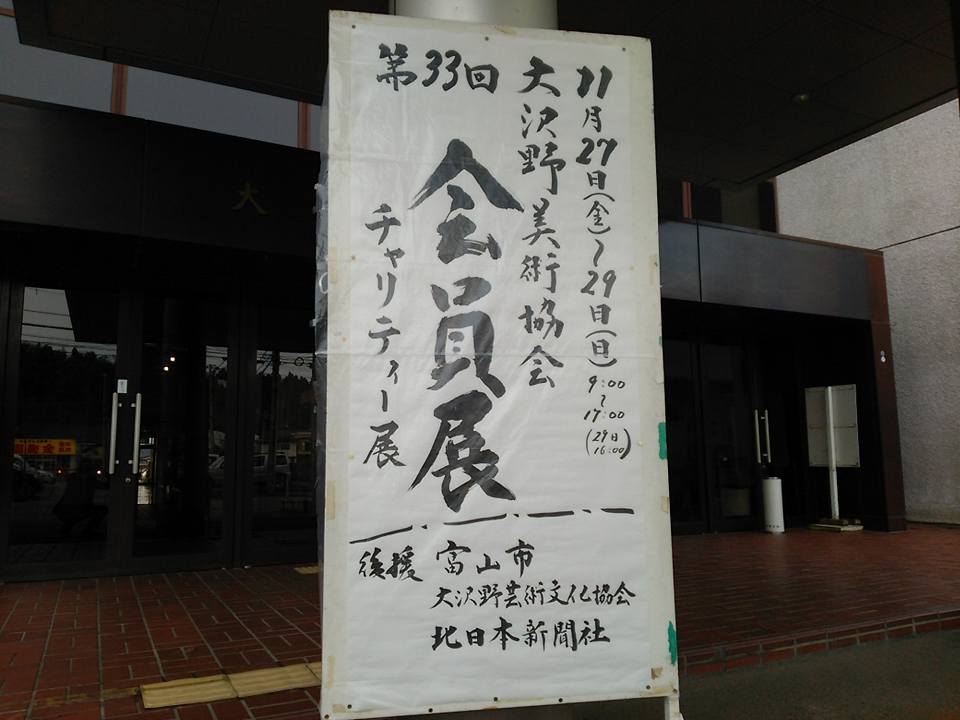 11月27日(金)~29日(日)
9:00
~
17:00
(29日
16:00)
大沢野美術協会
第33回
会員展
チャリティー展
後援 富山市
大沢野芸術文化協会
北日本新聞社
大